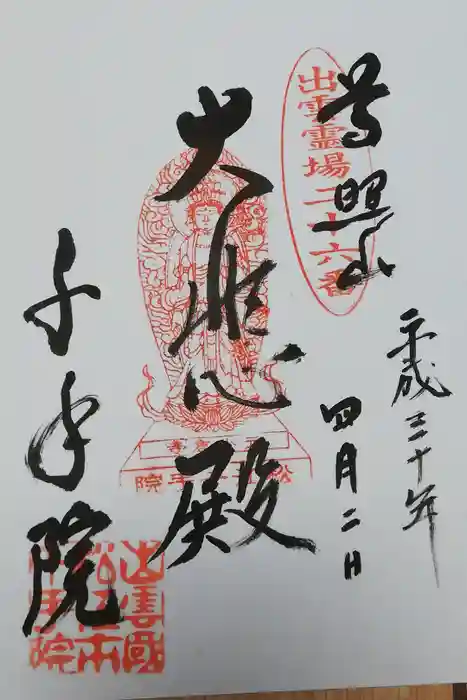 平成三十年
四月二日
出雲霊場二十六番
尊照山
大悲殿
千手院
出雲國
松江市
千手院